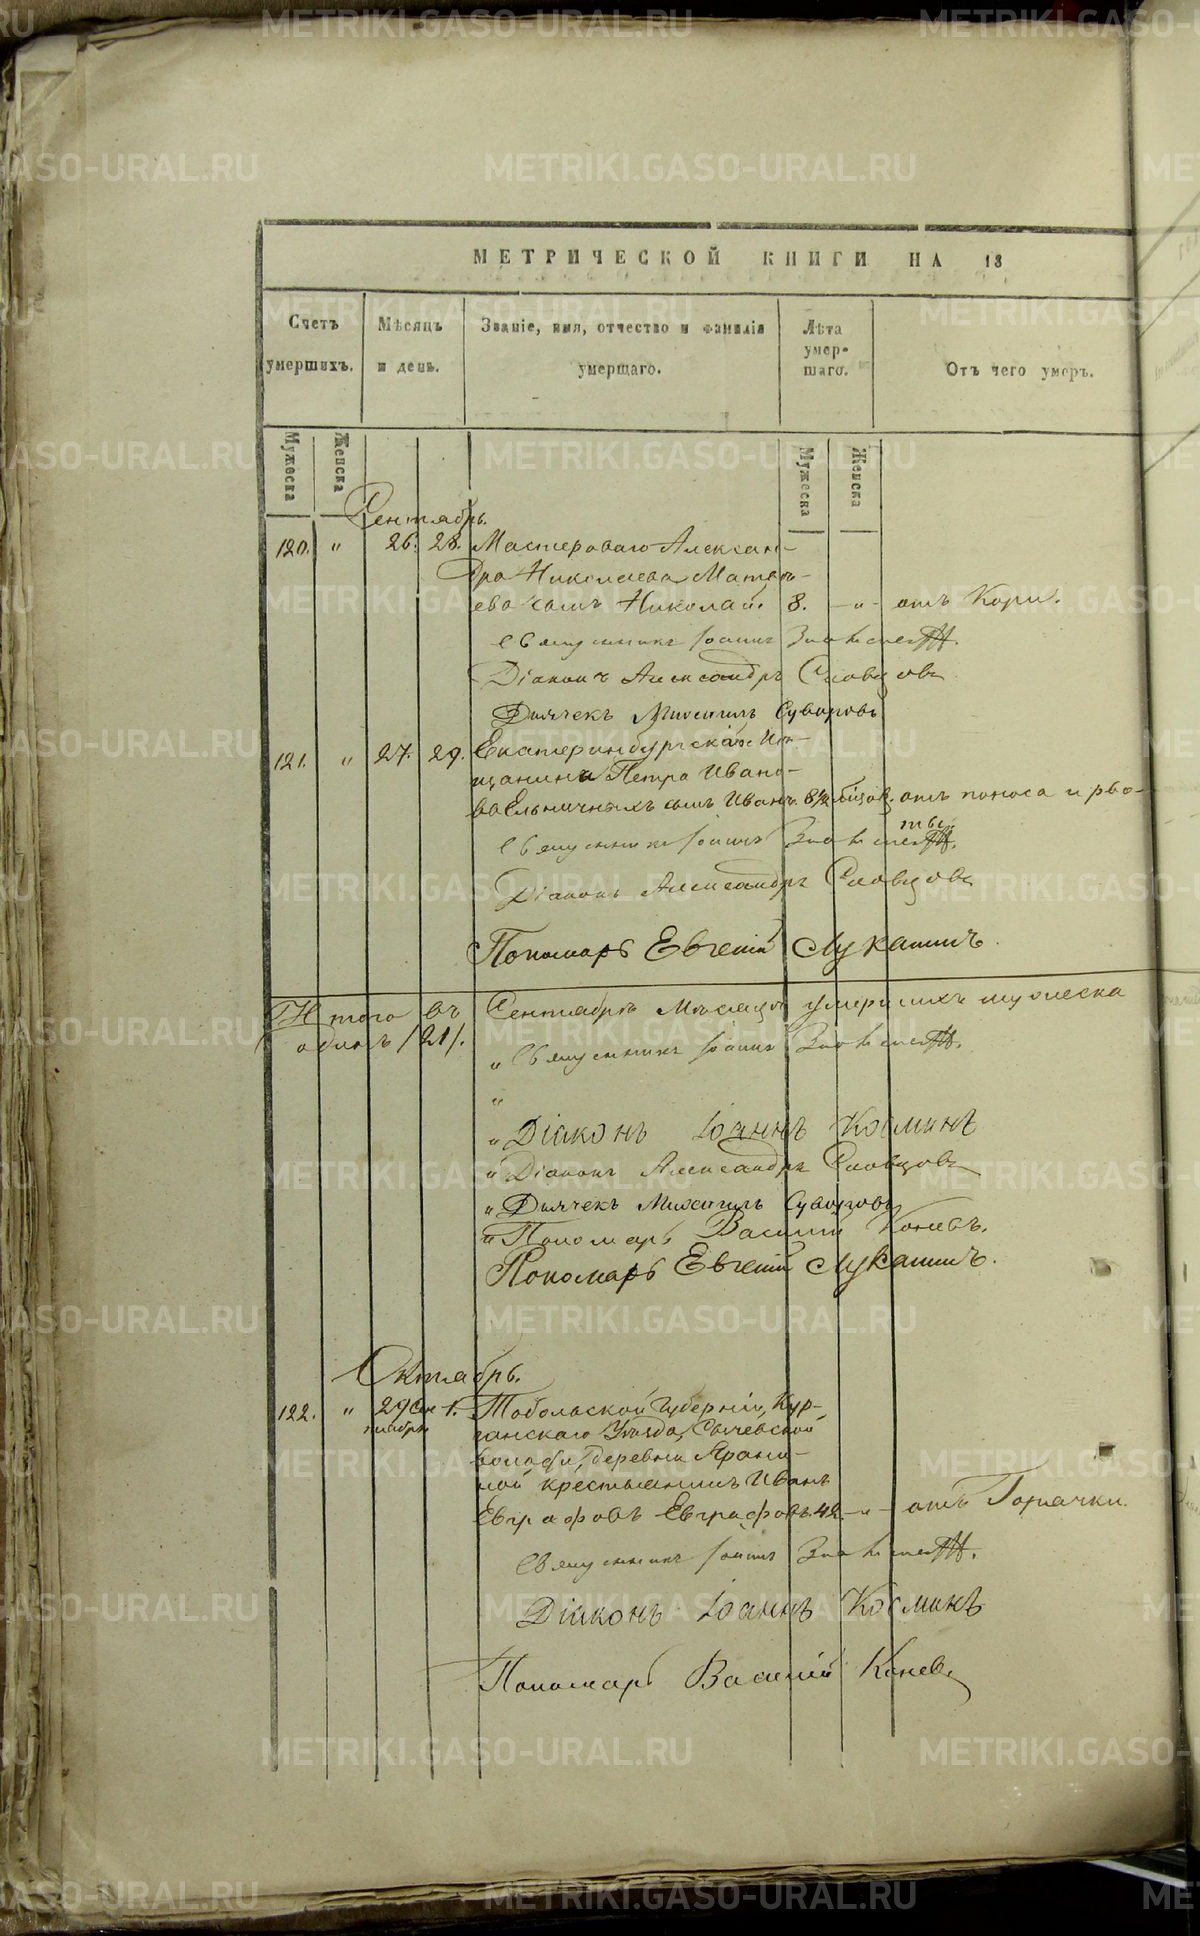 МЕТРИЧЕСКОЙ КНИГИ НА 18
Счетъ умершихъ.
Мѣсяцъ и день.
Званіе, имя, отчество и фамилія умершаго.
Лѣта умершаго.
Отъ чего умеръ.
Мужеска
Женска
Мужеска
Женска
Сентябрь.
120. " 26. 28. Мастероваго Алексан-
дра Николаева Матвѣ-
ева сынъ Николай. 8. -"- отъ Кори.
Священникъ Іоаннъ
Діаконъ Александръ Словцовъ
Дьячекъ Михаилъ Суворовъ
121. " 27. 29. Екатеринбургскаго Мѣ-
щанина Петра Ивано-
ва Ельничныхъ сынъ Иванъ 8½ отъ поноса и рво-
ты.
Священникъ Іоаннъ
Діаконъ Александръ Словцовъ
Пономарь Евгеній Лукашинъ.
Итого въ Сентябрѣ Мѣсяцѣ умершихъ мужеска
одинъ /21/.
" Священникъ Іоаннъ
"
" Діаконъ Іоаннъ Косминъ
" Діаконъ Александръ Словцовъ
" Дьячекъ Михаилъ Суворовъ
" Пономарь Василій Коневъ.
Пономарь Евгеній Лукашинъ.
Октябрь.
122. " 29 Сен- 1. Тобольской Губерніи, Кур-
тября
ганскаго Уѣзда, Сычевской
волости, деревни Ярани-
ной крестьянинъ Иванъ
Евграфовъ Евграфовъ. 42. -"- отъ Горячки.
Священникъ Іоаннъ
Діаконъ Іоаннъ Косминъ
Пономарь Василій Коневъ
METRIKI.GASO-URAL.RU